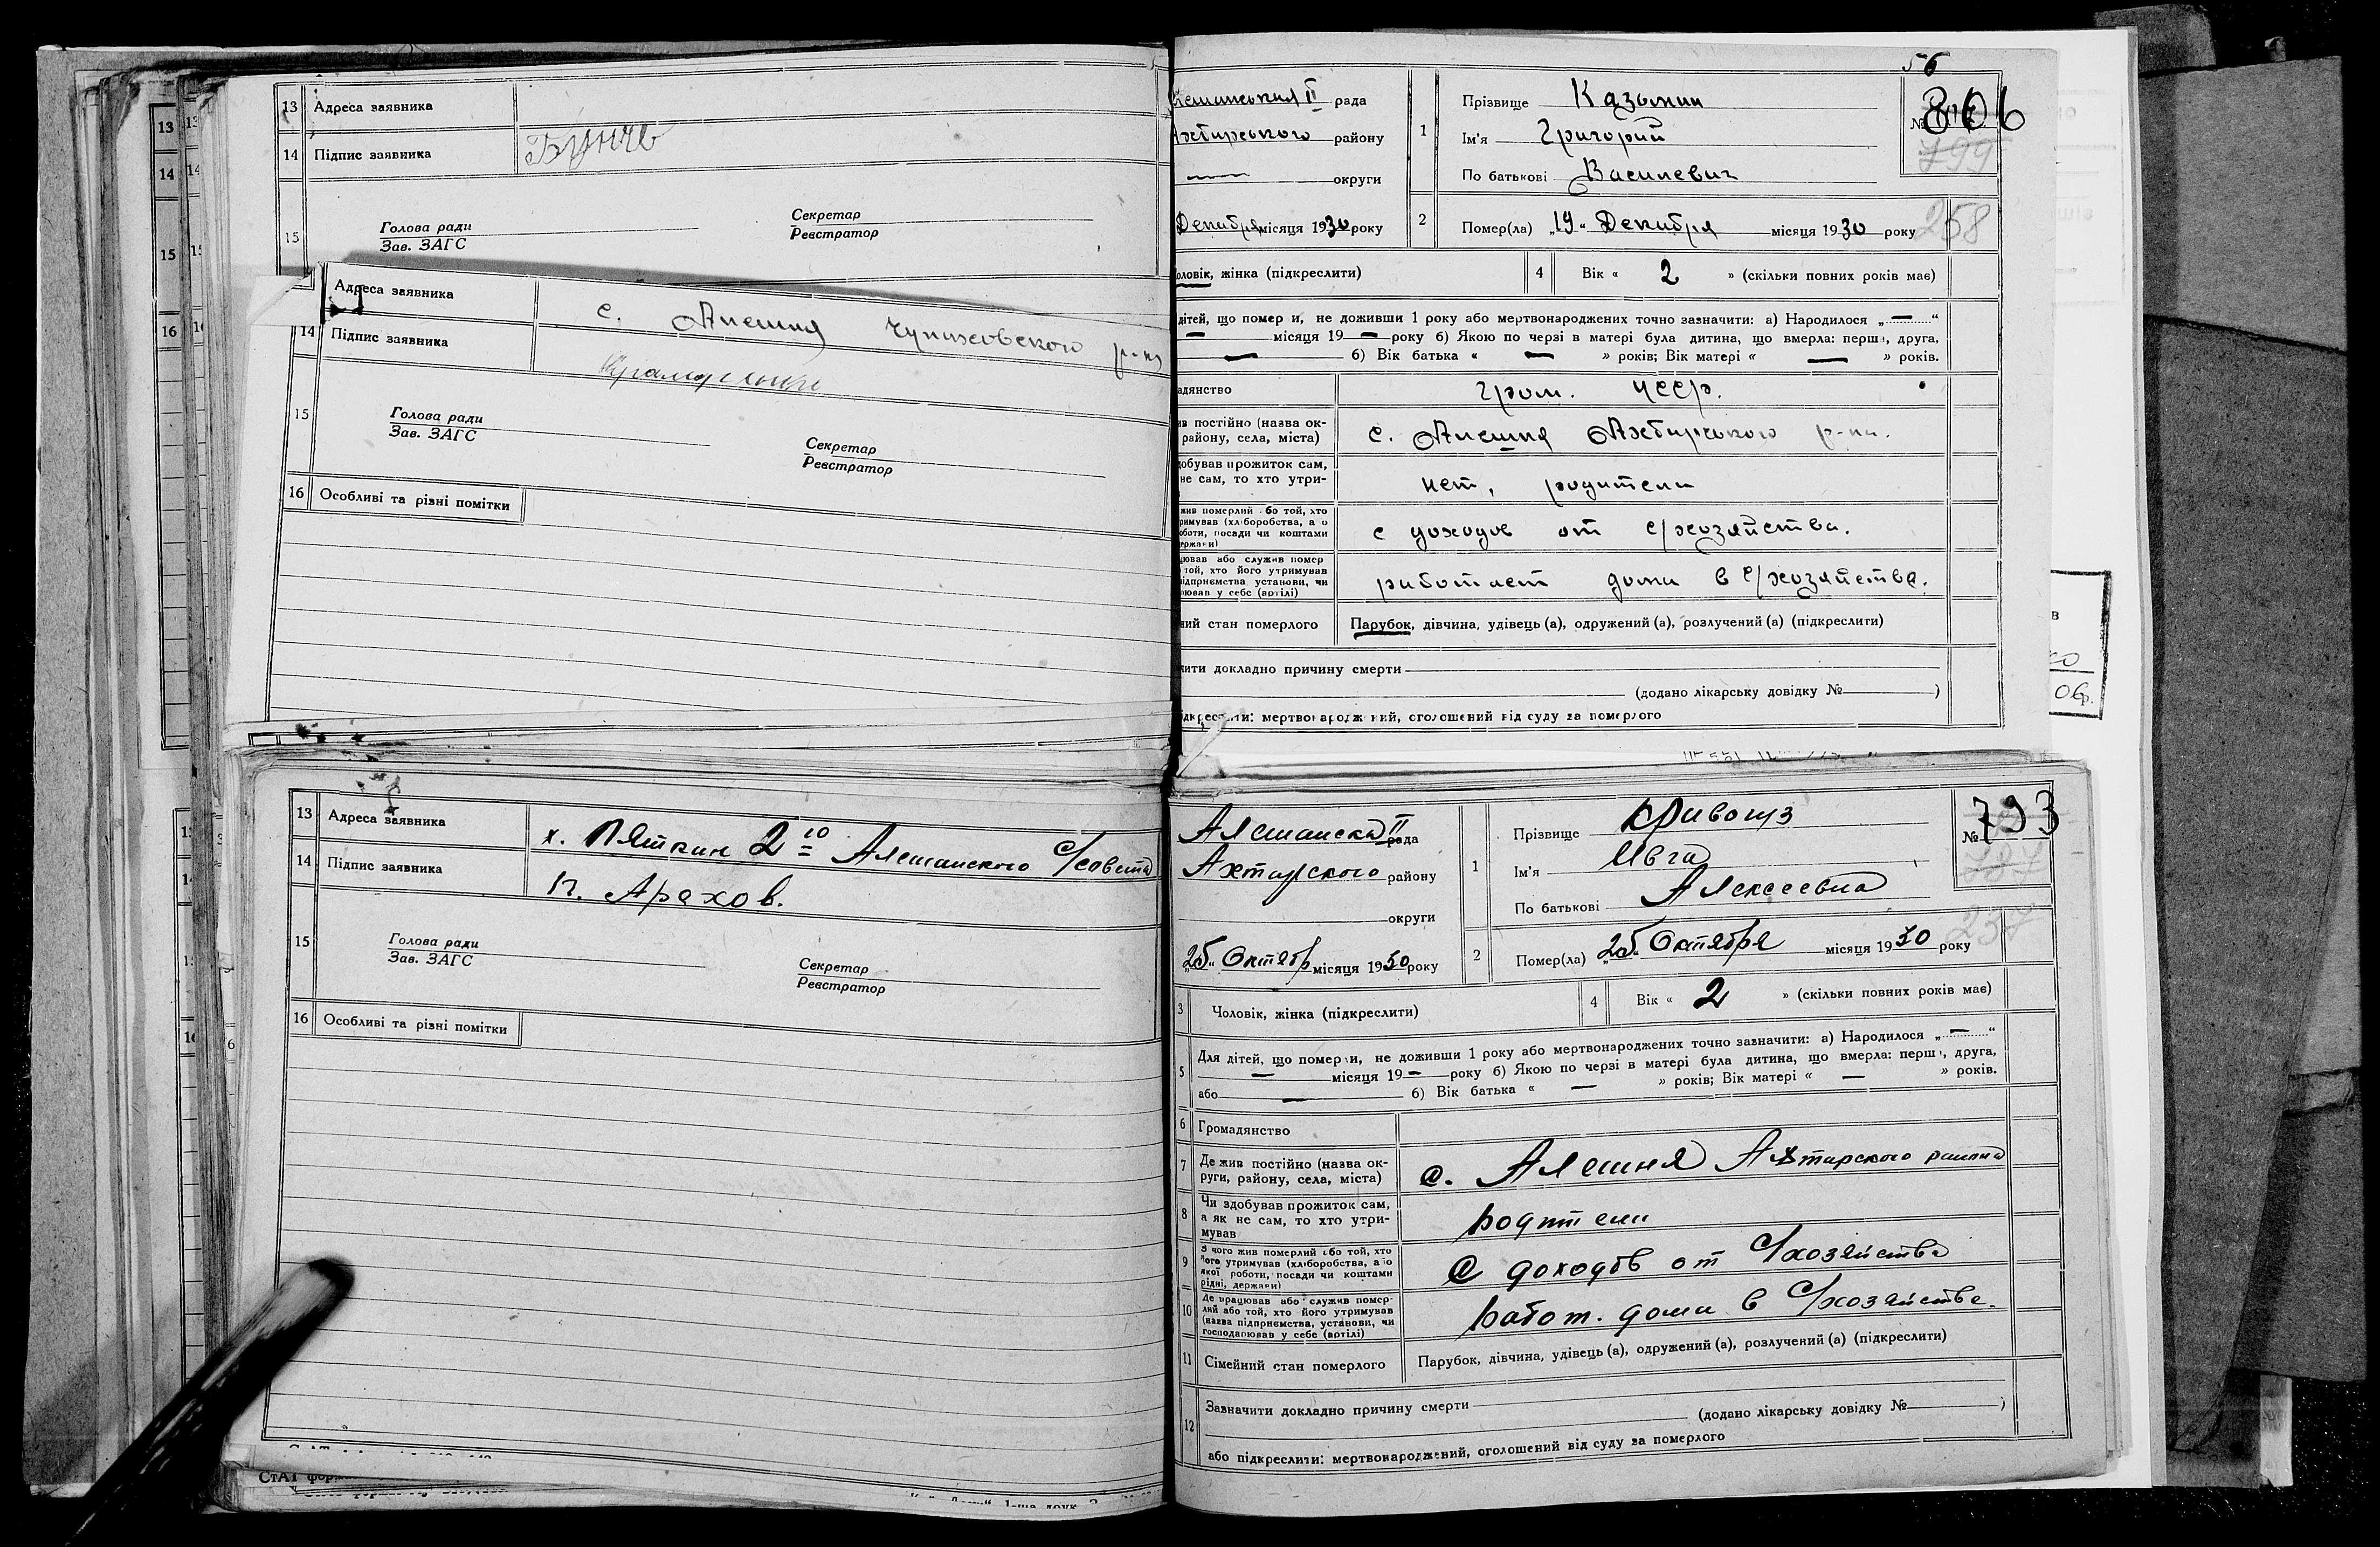 13 Адреса заявника
14 Підпис заявника
15 Голова ради
Зав. ЗАГС
Секретар
Реєстратор
Адреса заявника с. Алешня Чупаховского р-на
14 Підпис заявника
15 Голова ради
Зав. ЗАГС
Секретар
Реєстратор
16 Особливі та різні помітки
13 Адреса заявника х. Пяткин 2го Алешанского С/совета
14 Підпис заявника П. Арехов.
15 Голова ради
Зав. ЗАГС
Секретар
Реєстратор
16 Особливі та різні помітки
56
II рада
району
округи
Декабря місяця 1930 року
1 Прізвище Казьмин
Ім'я Григорий
По батькові Василевич
№ 806
799
258
2 Помер(ла) „19“ Декабря місяця 1930 року
жінка (підкреслити)
4 Вік « 2 » (скільки повних років має)
дітей, що померли, не доживши 1 року або мертвонароджених точно зазначити: а) Народилося „ — “
— місяця 19 — року б) Якою по черзі в матері була дитина, що вмерла: перша, друга,
— б) Вік батька « — » років; Вік матері « — » років.
гром. УССР.
постійно (назва ок-
району, села, міста) с. Алешня Ахтирського р-на.
прожиток сам,
не сам, то хто утри- нет, родители
с доходов от с/хозяйства.
работает дома в с/хозяйстве.
стан померлого Парубок, дівчина, удівець (а), одружений (а), розлучений (а) (підкреслити)
докладно причину смерти
(додано лікарську довідку № )
мертвонароджений, оголошений від суду за померлого
Алешанска II рада
Ахтырского району
округи
„25“ Октябр місяця 1930 року
1 Прізвище Кривощз
Ім'я Ивга
По батькові Алексеевна
№ 793
787
237
2 Помер(ла) „25“ Октября місяця 1930 року
3 Чоловік, жінка (підкреслити)
4 Вік « 2 » (скільки повних років має)
5 Для дітей, що померли, не доживши 1 року або мертвонароджених точно зазначити: а) Народилося „ — “
— місяця 19 — року б) Якою по черзі в матері була дитина, що вмерла: перша, друга,
або — б) Вік батька « — » років; Вік матері « — » років.
6 Громадянство
7 Де жив постійно (назва ок-
руги, району, села, міста) с. Алешня Ахтырского района
8 Чи здобував прожиток сам,
а як не сам, то хто утри-
мував родители
9 З чого жив померлий або той, хто
його утримував (хліборобства, або
якої роботи, посади чи коштами
рідні, держави) С доходов от С/хозяйства
10 Де працював або служив помер-
лий або той, хто його утримував
(назва підприємства, установи, чи
господарював у себе (артілі) работ. дома в С/хозяйстве.
11 Сімейний стан померлого Парубок, дівчина, удівець (а), одружений (а), розлучений (а) (підкреслити)
12 Зазначити докладно причину смерти
(додано лікарську довідку № )
або підкреслити: мертвонароджений, оголошений від суду за померлого